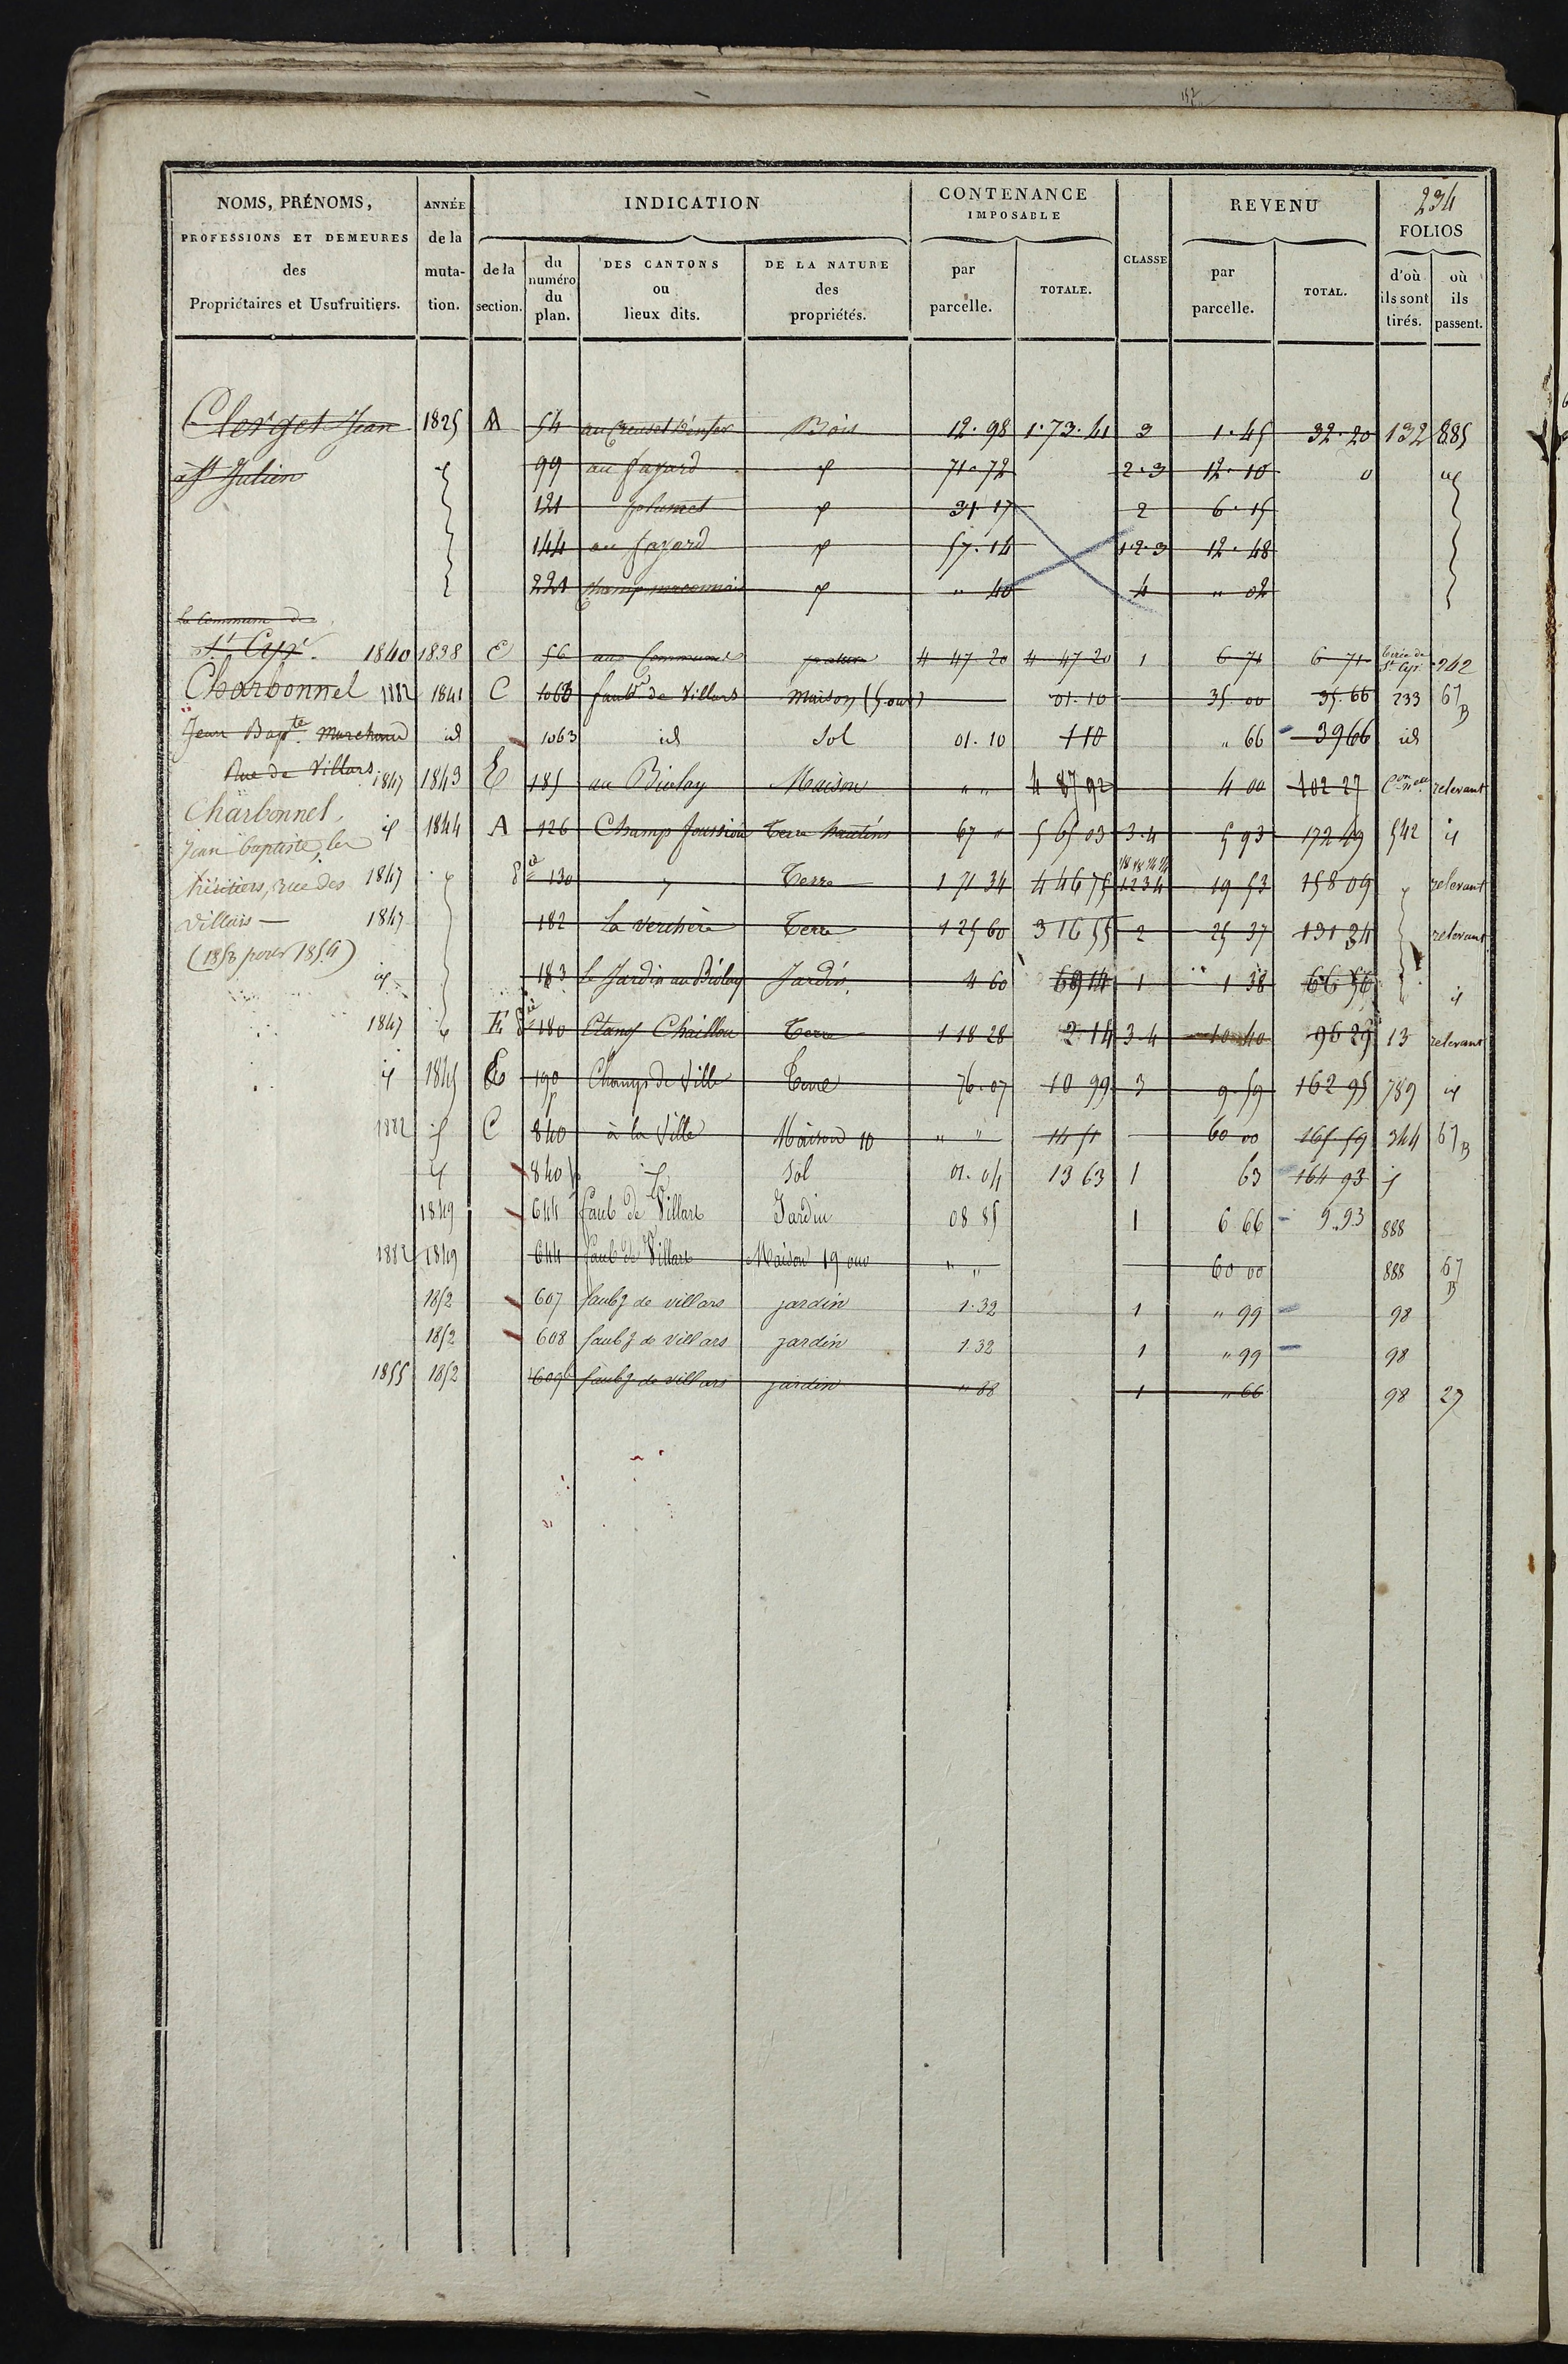 NOMS, PRÉNOMS, PROFESSIONS ET DEMEURES des Propriétaires et Usufruitiers.
ANNÉE de la muta-tion.
INDICATION
de la section.
du numéro du plan.
DES CANTONS ou lieux dits.
DE LA NATURE des propriétés.
CONTENANCE IMPOSABLE
par parcelle.
TOTALE.
CLASSE
REVENU
par parcelle.
TOTAL.
234
FOLIOS
d'où ils sont tirés.
où ils passent.
Clerget Jean 1825 A 54 au Creuset d'enfer Bois 12.98 1.73.41 3 1.45 32.20 132 885
à St Julien 99 au fayard 71.72 2.3 12.10
121 31.17 2 6.15
144 au fayard 57.14 1.2.3 12.48
221 Champ maconnais " 40 4 " 02
la Commune de
St Cyr. 1840 1838 E 56 aux Communes pature 4 47 20 4 47 20 1 6 71 6 71 St Cyr 242
Charbonnel 1882 1841 C 1063 faubg de Villars Maison (5 ouv) 01.10 35.00 35.66 233 67 B
Jean Bapte Marchand id 1063 id Sol 01.10 1 10 " 66 39 66 id
Rue de Villars 1847 1843 E 185 au Biolay Maison " " 4 87 92 4 00 102 27 relevant
Charbonnel, id 1844 A 126 Champ foussion Terre hautins 67 " 5 65 03 3.4 5 93 172 49 542 id
Jean baptiste, les
héritiers, rue des 1847 130 Terre 1 71 34 4 46 75 1234 19 53 158 09 relevant
Villars — 1847 182 La Verchère Terre 1 25 60 3 16 55 2 25 37 131 34 relevant
(1853 pour 1854)
id 183 le Jardin au Biolay Jardin 4 60 69 14 1 1 38 66 56 id
1847 E 180 Etang Chaillou Terre 1 18 28 2 14 3.4 10 40 96 29 13 relevant
id 1845 E 190 p Champ de Ville Terre 76.07 10 99 3 9.59 162 95 789 id
1882 id C 840 à la Ville Maison 10 " " 14 51 60 00 165.59 344 67 B
id 840 id Sol 01.04 13 63 1 63 164 93 id
1849 644 faub de Villars Jardin 08 85 1 6 66 9.93 888
1882 1849 644 faub de Villars Maison 19 ouv " " 60 00 888 67 B
1852 607 faubg de villars jardin 1.32 1 " 99 98
1852 608 faubg de villars jardin 1.32 1 " 99 98
1855 1852 609 faubg de villars jardin " 88 1 " 66 98 27